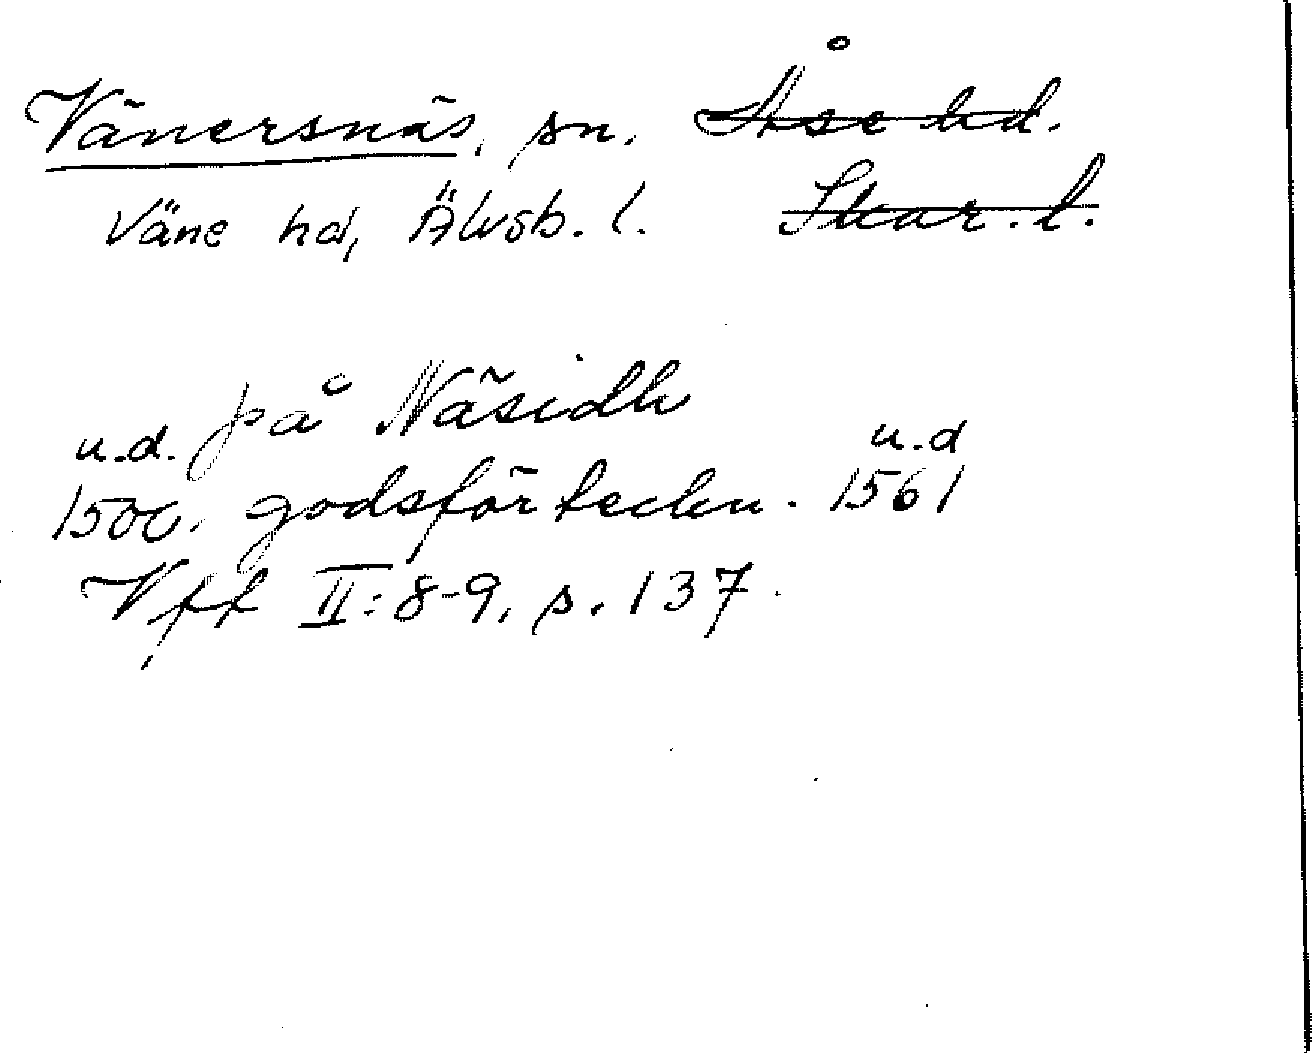 Vänersnäs, sn. Åse hd.
Väne hd, Älvsb. l. Skar. l.
på Näsidh
u.d. u.d
godsförteckn. 1561
Vff II: 8-9, s. 137.